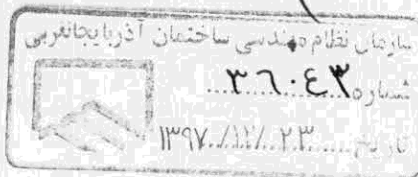 سازمان نظام مهندسی ساختمان آذربایجانغربی
شماره ۳۶۰۴۳
تاریخ ۱۳۹۷/۱۱/۲۳